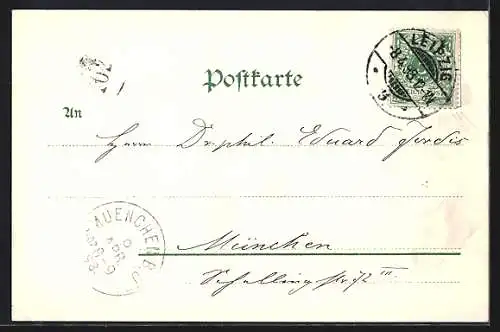 LEIPZIG
3
Postkarte
An
Herrn Dr. phil. Eduard Jordis
MUENCHEN
München
Schellingstr. 72 III